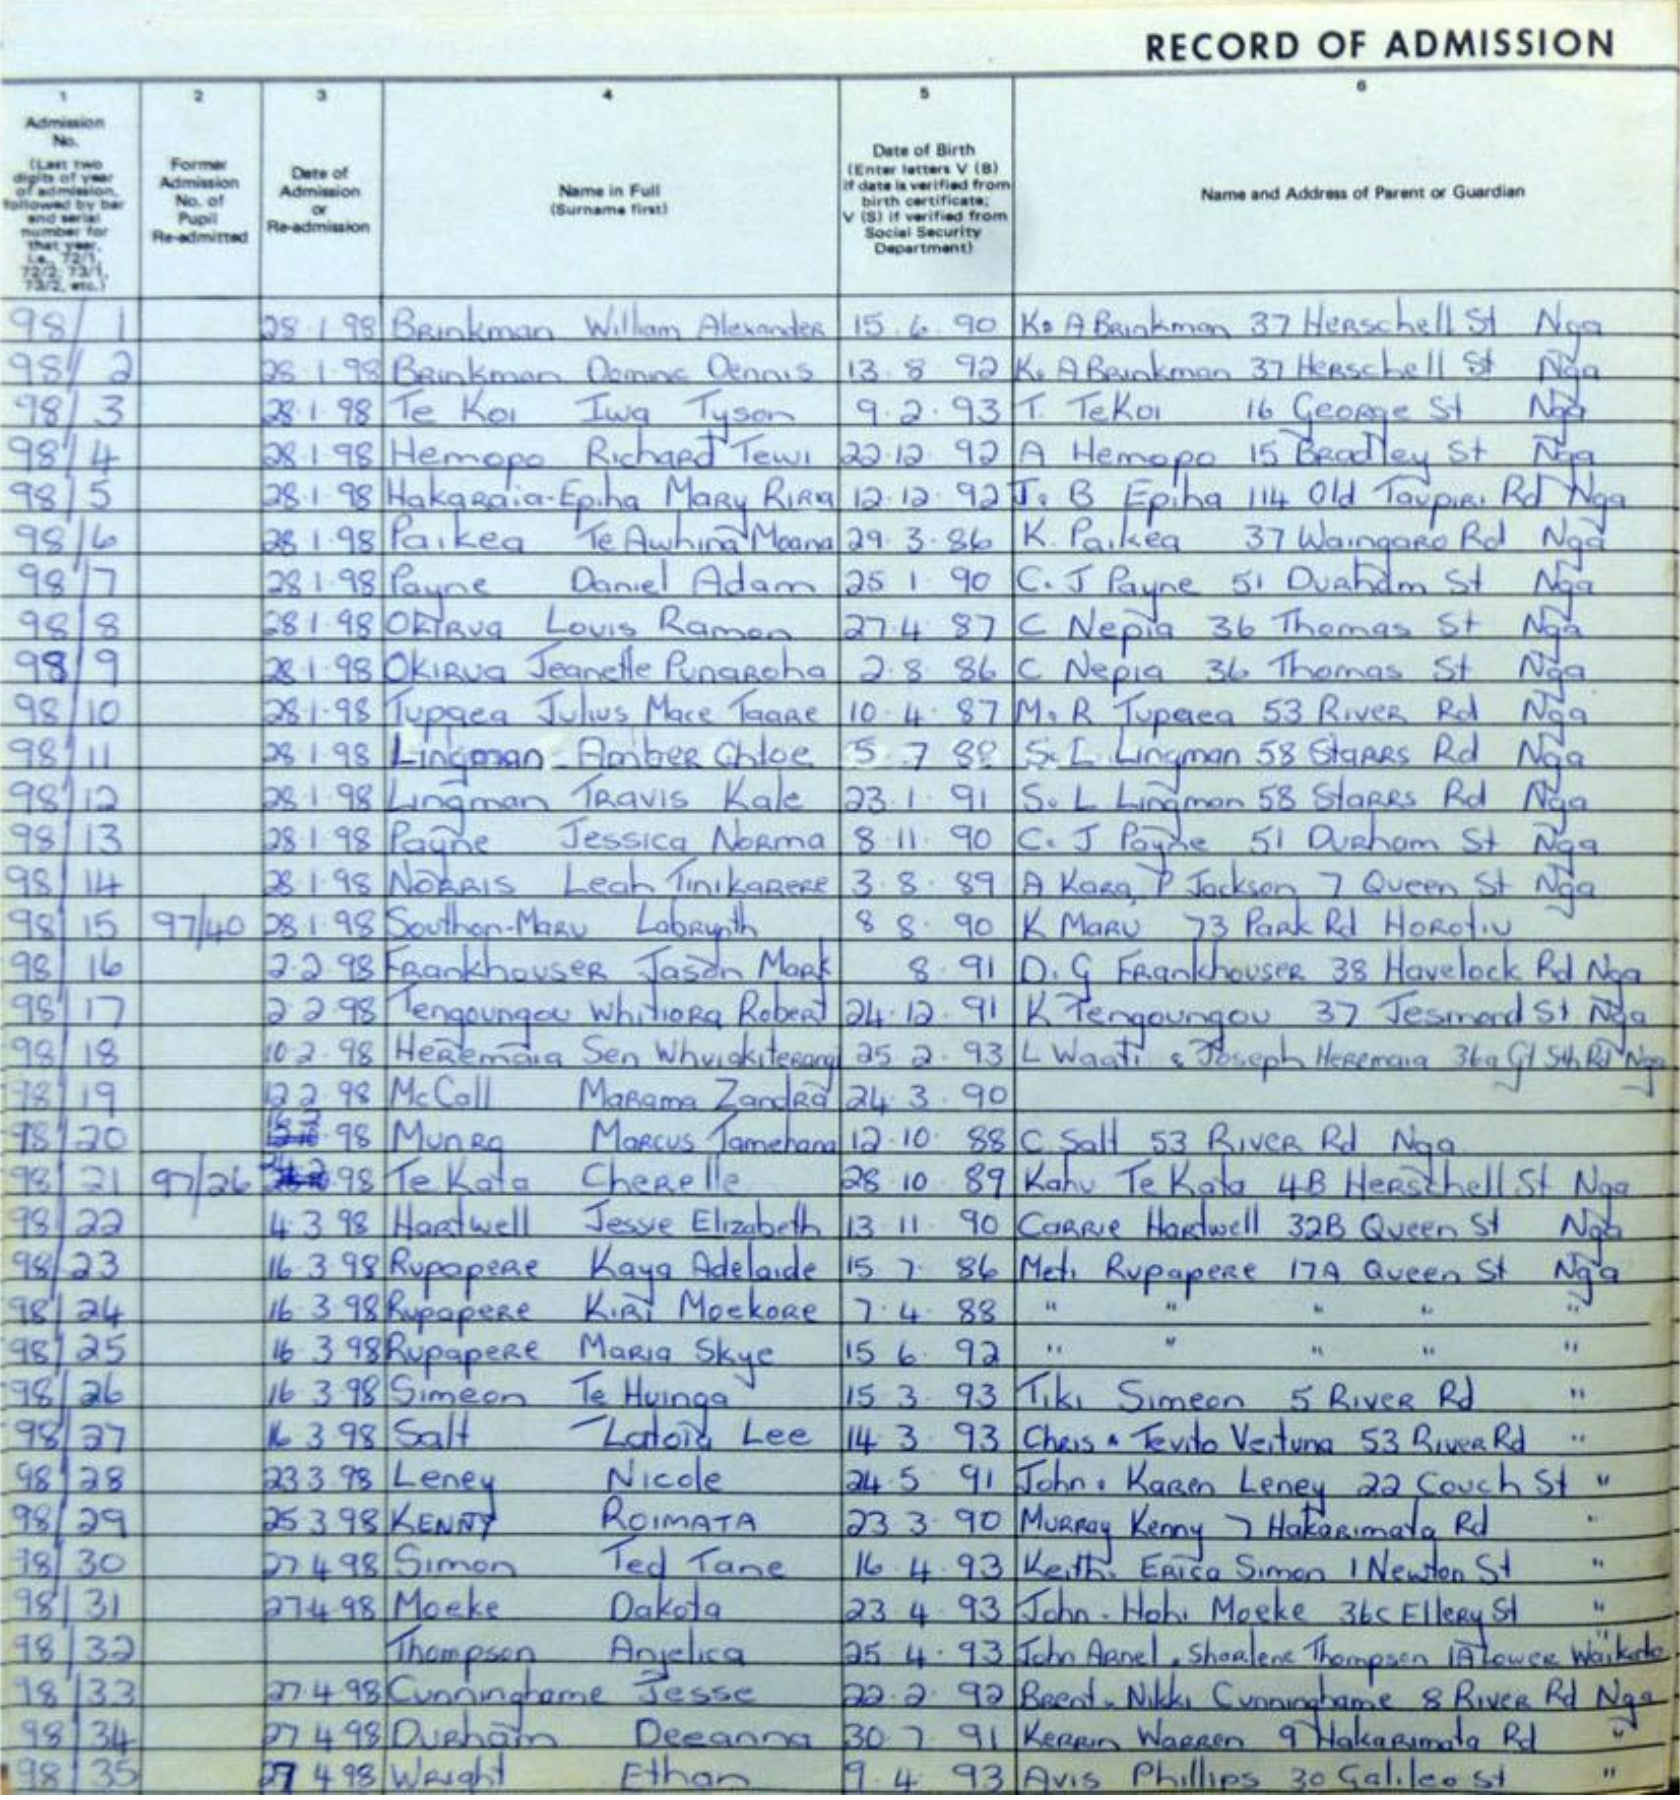 RECORD OF ADMISSION
1 2 3 4 5 6
Admission No. (Last two digits of year of admission, followed by bar and serial number for that year, i.e., 72/1, 72/2, 73/1, 73/2, etc.)
Former Admission No. of Pupil Re-admitted
Date of Admission or Re-admission
Name in Full (Surname first)
Date of Birth (Enter letters V (B) if date is verified from birth certificate; V (S) if verified from Social Security Department)
Name and Address of Parent or Guardian
98/1 28.1.98 Brinkman William Alexander 15.6.90 K. A Brinkman 37 Herschell St Nga
98/2 28.1.98 Brinkman Dennis 13.8.92 K. A Brinkman 37 Herschell St Nga
98/3 28.1.98 Te Koi Iwa Tyson 9.2.93 T. TeKoi 16 George St Nga
98/4 28.1.98 Hemopo Richard Tewi 22.12.92 A Hemopo 15 Bradley St Nga
98/5 28.1.98 Hakaraia-Epiha Mary Riria 12.12.92 J. B Epiha 114 Old Taupiri Rd Nga
98/6 28.1.98 Paikea Te Awhina Moana 29.3.86 K. Paikea 37 Waingaro Rd Nga
98/7 28.1.98 Payne Daniel Adam 25 1 90 C. J Payne 51 Durham St Nga
98/8 28.1.98 Okirua Louis Ramon 27.4 87 C Nepia 36 Thomas St Nga
98/9 28.1.98 Okirua Jeanette Punaroha 2.8.86 C Nepia 36 Thomas St Nga
98/10 28.1.98 Tupaea Julius Mace Taare 10.4.87 M. R Tupaea 53 River Rd Nga
98/11 28.1.98 Lingman Amber Chloe 5.7 88 S. L Lingman 58 Starrs Rd Nga
98/12 28.1.98 Lingman Travis Kale 23.1.91 S. L Lingman 58 Starrs Rd Nga
98/13 28.1.98 Payne Jessica Norma 8.11.90 C. J Payne 51 Durham St Nga
98/14 28.1.98 Norris Leah Tinikarere 3.8.89 A Kara, P Jackson 7 Queen St Nga
98/15 97/40 28.1.98 Southon-Maru Labrynth 8 8.90 K Maru 73 Park Rd Horotiu
98/16 2.2.98 Frankhouser Jason Mark 8.91 D. G Frankhouser 38 Havelock Rd Nga
98/17 2.2.98 Tengoungou Whitiora Robert 24.12.91 K Tengoungou 37 Jesmond St Nga
98/18 10.2.98 Heremaia Sen 25 2.93 L Waati & Joseph Heremaia 36a Gt Sth Rd Nga
98/19 12.2.98 McCall Marama Zandra 24.3.90
98/20 98 Munro Marcus Tamehana 12.10.88 C Salt 53 River Rd Nga
98/21 97/26 98 Te Kata Cherelle 28.10.89 Kahu Te Kata 4B Herschell St Nga
98/22 4.3.98 Hartwell Jessie Elizabeth 13 11.90 Carrie Hartwell 32B Queen St Nga
98/23 16.3.98 Rupapere Kaya Adelaide 15 7.86 Meti Rupapere 17A Queen St Nga
98/24 16.3.98 Rupapere Kiri Moekore 7.4.88 " " " " "
98/25 16 3 98 Rupapere Maria Skye 15 6.92 " " " " "
98/26 16 3 98 Simeon Te Huinga 15 3.93 Tiki Simeon 5 River Rd "
98/27 16 3 98 Salt Latoia Lee 14.3.93 Chris & Tevito Veituna 53 River Rd "
98/28 23 3.98 Leney Nicole 24.5 91 John. Karen Leney 22 Couch St "
98/29 25 3 98 KENNY ROIMATA 23 3.90 Murray Kenny 7 Hakarimata Rd "
98/30 27 4 98 Simon Ted Tane 16.4.93 Keith. Erica Simon 1 Newton St "
98/31 27 4 98 Moeke Dakota 23 4.93 John. Hohi Moeke 36c Ellery St "
98/32 Thompson Anjelica 25.4.93 John Sharlene Thompson 1A Lower Waikato "
98/33 27.4.98 Cunninghame Jesse 22.2.92 Brent. Nikki Cunninghame 8 River Rd Nga
98/34 27 4 98 Durham Deeanna 30.7.91 Kerrin Warren 9 Hakarimata Rd "
98/35 27 4 98 Wright Ethan 9.4.93 Avis Phillips 30 Galileo St "